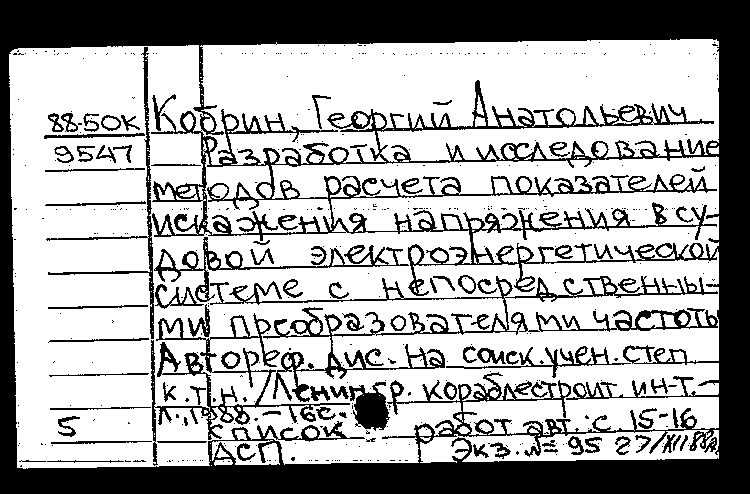 88-50К Кобрин, Георгий Анатольевич
9547 Разработка и исследование
методов расчета показателей
искажения напряжения в су-
довой электроэнергетической
системе с непосредственны-
ми преобразователями частоты
Автореф. дис. на соиск. учен. степ
к.т.н. /Ленингр. кораблестроит. ин-т.-
Л., 1988. - 16с.
5 список работ авт.: с. 15-16
ДСП. Экз. № 95 27/XII 88г.